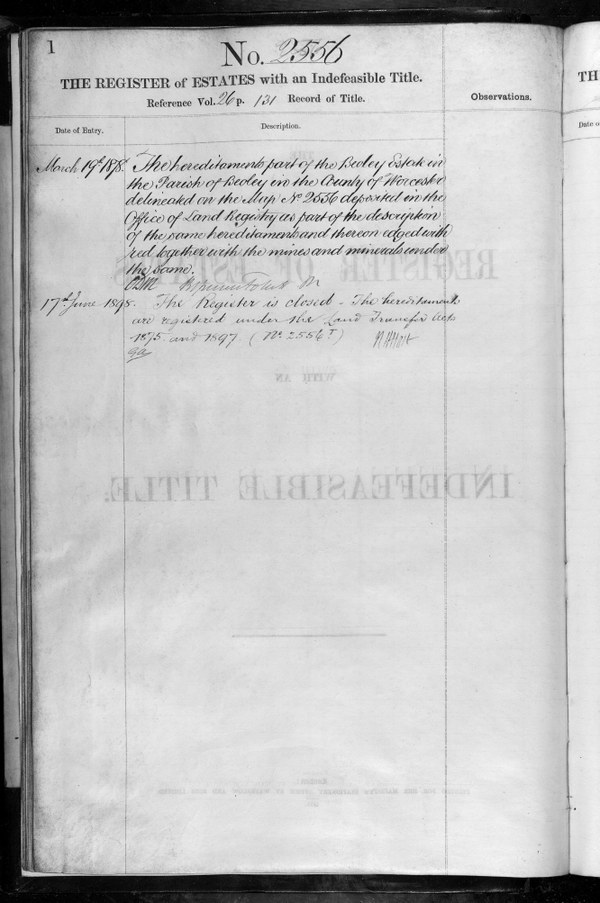 1
No. 2556
THE REGISTER of ESTATES with an Indefeasible Title.
Reference Vol. 26 p. 131 Record of Title.
Observations.
Date of Entry.
Description.
March 19th 1878.
The hereditaments part of the Beoley Estate in
the Parish of Beoley in the County of Worcester
delineated on the Map No 2556 deposited in the
Office of Land Registry as part of the description
of the same hereditaments and thereon edged with
red together with the mines and minerals under
the same.
17th June 1898.
The Register is closed - The hereditaments
are registered under the Land Transfer Acts
1875 and 1897. (No. 2556T)
TH
Date o
REGISTER OF ESTATES
WITH AN
INDEFEASIBLE TITLE.